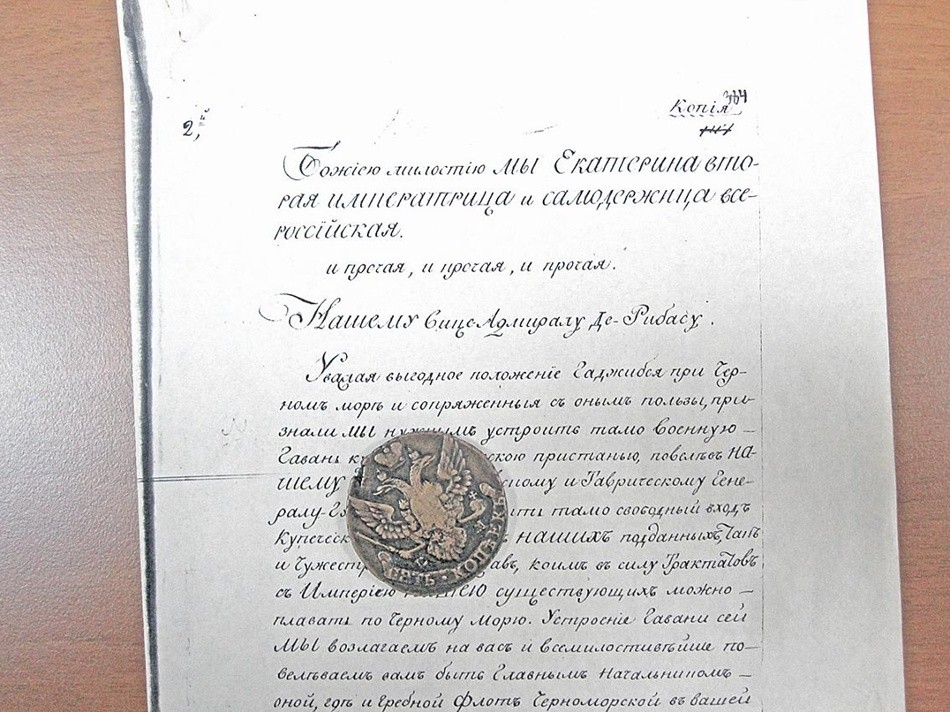 Копія 364
2,
Божіею милостію МЫ Екатерина вто-
рая императрица и самодержица все-
россійская.
и прочая, и прочая, и прочая.
Нашему Вице Адмиралу Де-Рибасу.
Уважая выгодное положеніе Гаджибея при Чер-
номъ морѣ и сопряженныя съ онымъ пользы, при-
знали МЫ нужнымъ устроить тамо военную
Гавань скою пристанью, повелѣвъ НА-
ШЕМУ скому и Таврическому Гене-
ралу-Г ить тамо свободный входъ
Купечес НАШИХЪ подданныхъ, такъ
и чужестр авъ, коимъ въ силу Трактатовъ
съ Имперіею НАШЕЮ существующихъ можно
плавать по Черному Морю. Устроеніе Гавани сей
МЫ возлагаемъ на васъ и всемилостивѣйше по-
велѣваемъ вамъ быть Главнымъ Начальникомъ
оной, гдѣ и Гребной Флотъ Черноморской въ вашей
ПЯТЬ КОПѢЕКЪ